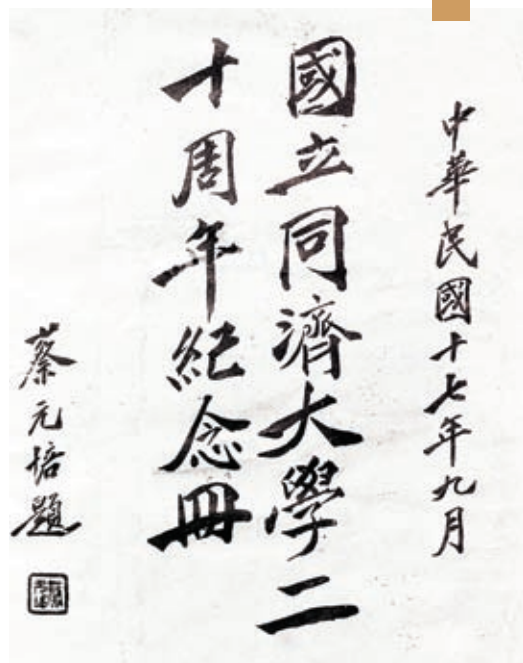 中華民國十七年九月
國立同濟大學二
十周年紀念冊
蔡元培題